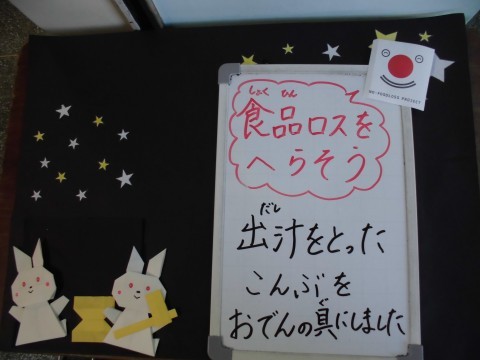 しょく ひん
食品ロスを
へらそう
だし
出汁をとった
こんぶを
ぐ
おでんの具にしました
NO-FOODLOSS PROJECT